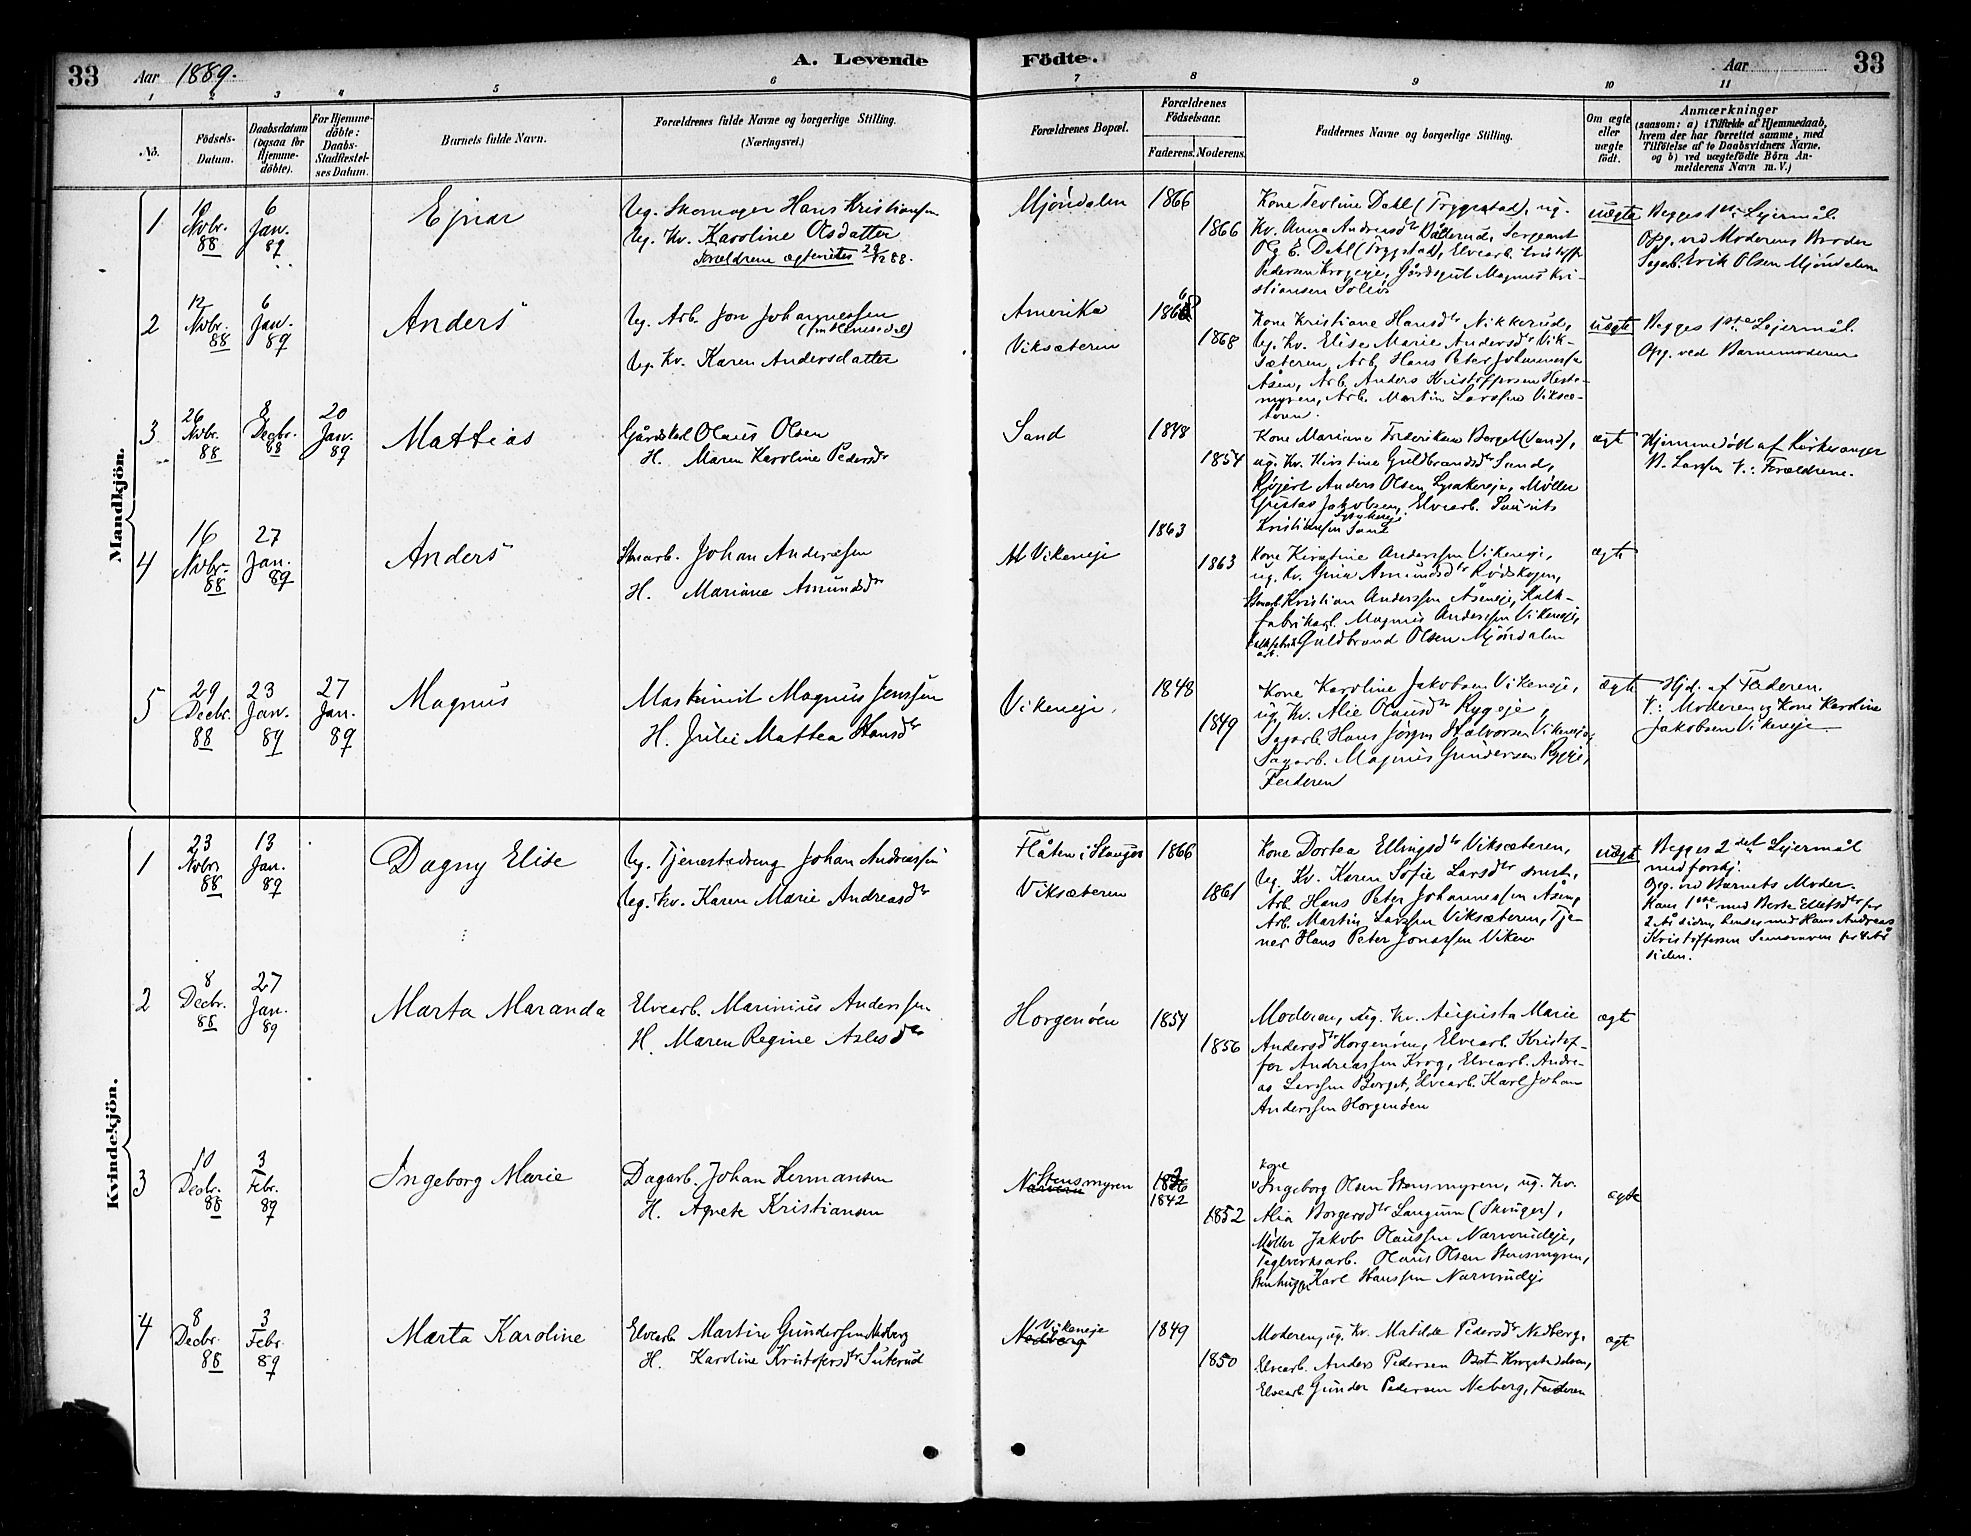 33 Aar 1889. A. Levende Födte. Aar 33
1 2 3 4 5 6 7 8 9 10 11
No.
Födsels-Datum.
Daabsdatum (ogsaa for Hjemme-döbte).
For Hjemme-döbte: Daabs-Stadfæstel-ses Datum.
Barnets fulde Navn.
Forældrenes fulde Navne og borgerlige Stilling. (Næringsvei.)
Forældrenes Bopæl.
Forældrenes Födselsaar.
Faderens. Moderens.
Faddernes Navne og borgerlige Stilling.
Om ægte eller uægte födt.
Anmærkninger
(saasom: a) i Tilfælde af Hjemmedaab,
hvem der har forrettet samme, med
Tilföielse af to Daabsvidners Navne.
og b) ved uægtefödte Börn An-
melderens Navn m. V.)
Mandkjön.
1
10 Novbr. 88
6 Jan. 89
Ejnar
Ug. Skomager Hans Kristiansen
Ug. Kv. Karoline Olsdatter
Forældrene ægteviet
Mjöndalen
1866
1866
Kone Teoline Dahl (Tryggestad), ug.
Kv. Anna Andreasdtr
E. Dahl (Tryggestad), Elvearb. Kristoffr
Pedersen Krogeje, Gårdsgut Magnus Kri-
stiansen
uægte
Begges 1ste Lejermål.
Opg. ved Moderens Broder
Sagarb. Erik Olsen Mjöndalen
2
12 Novbr. 88
6 Jan. 89
Anders
Ug. Arb. Jon Johannessen
Ug. Kv. Karen Andersdatter
Amerika
Viksæteren
1868
Kone Kristiane Hansdtr Nikkerud,
Ug. Kv. Elise Marie Andersdtr Vik-
sæteren, Arb. Hans Peter Johannessen
Åsen, Arb. Anders Kristoffersen Heste-
myren, Arb. Martin Larssen Viksæ-
teren.
uægte
Begges 1ste Lejermål.
Opg. ved Barnemoderen
3
26 Novbr. 88
8 Decbr. 88
20 Jan. 89
Mattias
Olaus Olsen
H. Maren Karoline Pedersdtr
Sand
1848
1854
Kone Mariane Frederiksen Berget (Sand),
ug. Kv. Kirstine Guldbrandsdtr Sand,
Anders Olsen Lyvakereje, Møller
Gustav Jakobsen, Elvearb. Laurits
Kristiansen Sand
ægte
Hjemmedöbt af Kirkesanger
B. Larssen V.: Forældrene.
4
16 Novbr. 88
27 Jan. 89
Anders
Stenarb. Johan Anderssen
H. Mariane Amundsdtr
Vikeneje
1863
1863
Kone Kirstine Anderssen Vikeneje,
ug. Kv. Gina Amundsdtr Rödskogen,
Stenarb. Kristian Anderssen Åseneje, Kalk-
fabrikarb. Magnus Anderssen Vikeneje,
Guldbrand Olsen Mjöndalen
ægte
5
29 Decbr. 88
23 Jan. 89
27 Jan. 89
Magnus
Maskinist Magnus Jenssen
H. Julie Mattea Hansdtr
Vikeneje.
1848
1849
Kone Karoline Jakobsen Vikeneje,
ug. Kv. Alie Olausdtr Rygeje,
Sagarb. Hans Jörgen Halvorsen Vikeneje,
Sagarb. Magnus Gundersen Rygeje,
Faderen
ægte
Hjd. af Faderen.
V.: Moderen og Kone Karoline
Jakobsen Vikeneje
Kvindekjön.
1
23 Novbr. 88
13 Jan. 89
Dagny Elise
Ug. Tjenestedreng Johan Andreassen
Ug. Kv. Karen Marie Andreasdtr
Flåten i Skouger
Viksæteren
1866
1861
Kone Dortea Ellingsdtr Viksæteren,
Ug. Kv. Karen Sofie Larsdtr smst.,
Arb. Hans Peter Johannessen Åsen,
Arb. Martin Larssen Viksæteren, Tje-
ner Hans Peter Jonassen Viken
uægte
Begges 2det Lejermål
med forskj.
Opg. ved Barnets Moder.
Hans 1ste med Berte Ellefsdtr for
2 År siden, hendes med Hans Andreas
Kristoffersen for 4 År
siden.
2
8 Decbr. 88
27 Jan. 89
Marta Maranda
Elvearb. Marinius Anderssen
H. Maren Regine Axlesdtr
Horgenöen
1854
1856
Moderen, ug. Kv. Augusta Marie
Andersdtr Horgenöen, Elvearb. Kristof-
fer Andreassen Krog, Elvearb. Andre-
as Larssen Berget, Elvearb. Karl Johan
Anderssen Horgenöen
ægte
3
10 Decbr. 88
3 Febr. 89
Ingeborg Marie
Dagarb. Johan Hermansen
H. Agnete Kristiansen
Stensmyren
1842
1852
Kone
Ingeborg Olsen Stensmyren, ug. Kv.
Alia Borgersdtr Langum (Skouger),
Møller Jakob Olaussen Narverudeje,
Teglverksarb. Olaus Olsen Stensmyren,
Stenhugger Karl Hanssen Narverudeje
ægte
4
8 Decbr. 88
3 Febr. 89
Marta Karoline
Elvearb. Martin Gundersen Nedberg
H. Karoline Kristofersdtr Suterud
Vikeneje
Nedberg
1849
1850
Moderen, ug. Kv. Matilde Pedersdtr Nedberg,
Elvearb. Anders Pedersen Öst Krogstadelven,
Elvearb. Gunder Pedersen Neberg, Faderen
ægte